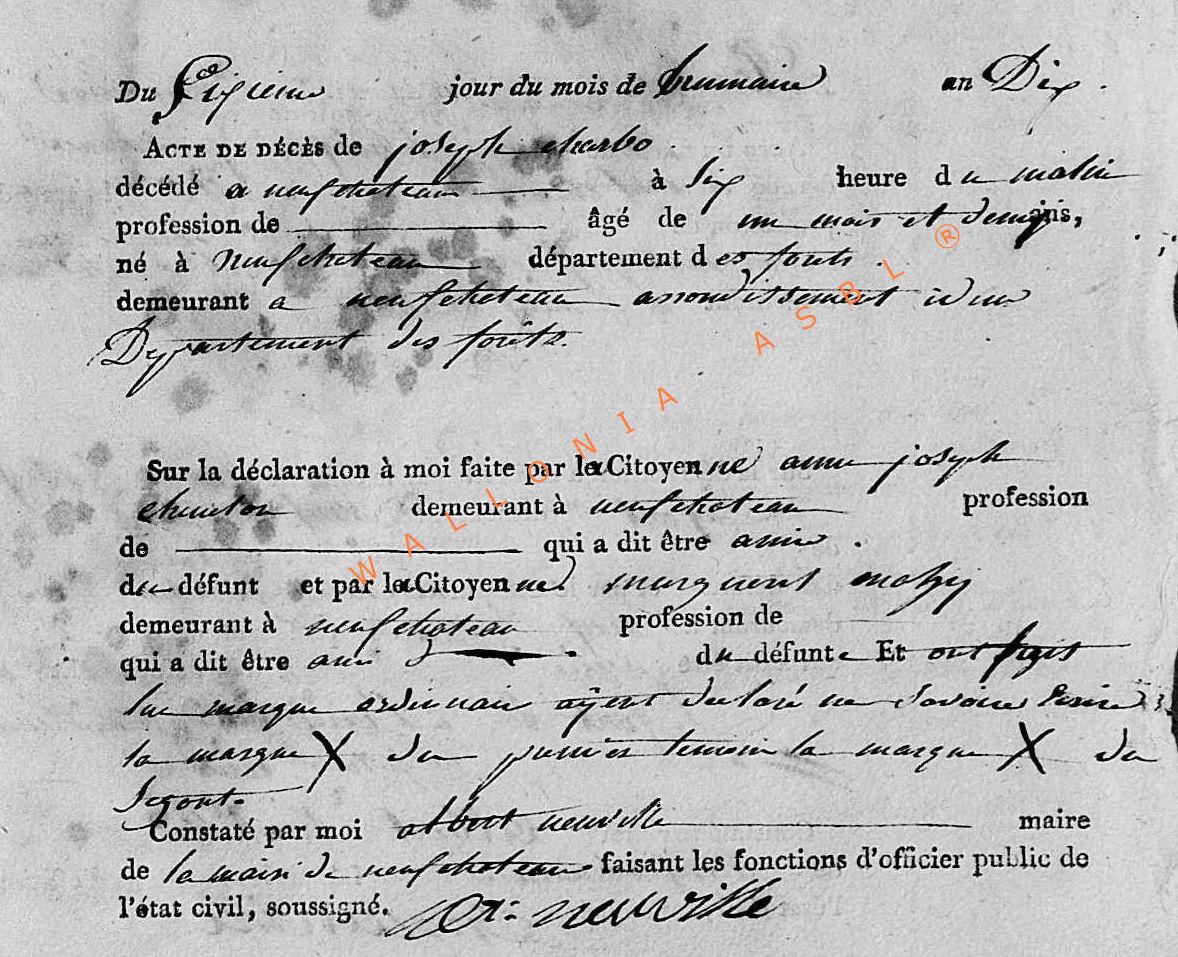 Du Sixieme jour du mois de brumaire an Dix .
ACTE DE DÉCÈS de joseph charbo .
décédé a neufchateau à Six heure du matin
profession de âgé de un mois et demy ans,
né à neufchateau département des forets .
demeurant a neufchateau arrondissement idem
Departement des forêts.
Sur la déclaration à moi faite par la Citoyenne anne joseph
demeurant à neufchateau profession
de qui a dit être amie .
du défunt et par la Citoyenne
demeurant à neufchateau profession de
qui a dit être amie du défunt Et ont fait
leur marque ordinaire ayent declaré ne Savoire Ecrire
la marque X du premier temoin la marque X du
Segont.
Constaté par moi albert neuville maire
de la mairi de neufchateau faisant les fonctions d'officier public de
l'état civil, soussigné. neuville
WALLONIA ASBL ®